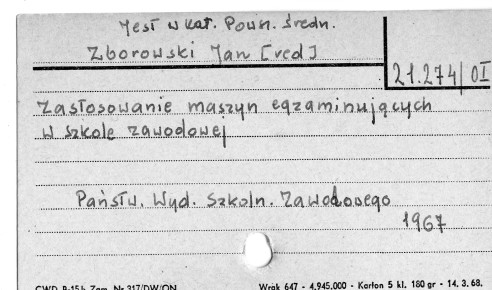 Jest w kat. Powsz. Średn.
Zborowski Jan [red]
21.274/OI
Zastosowanie maszyn egzaminujących
w szkole zawodowej
Państw. Wyd. Szkoln. Zawodowego
1967
CWD P-15b Zam. Nr 317/DW/ON Wrak 647 - 4.945.000 - Karton 5 kl. 180 gr - 14. 3. 68.